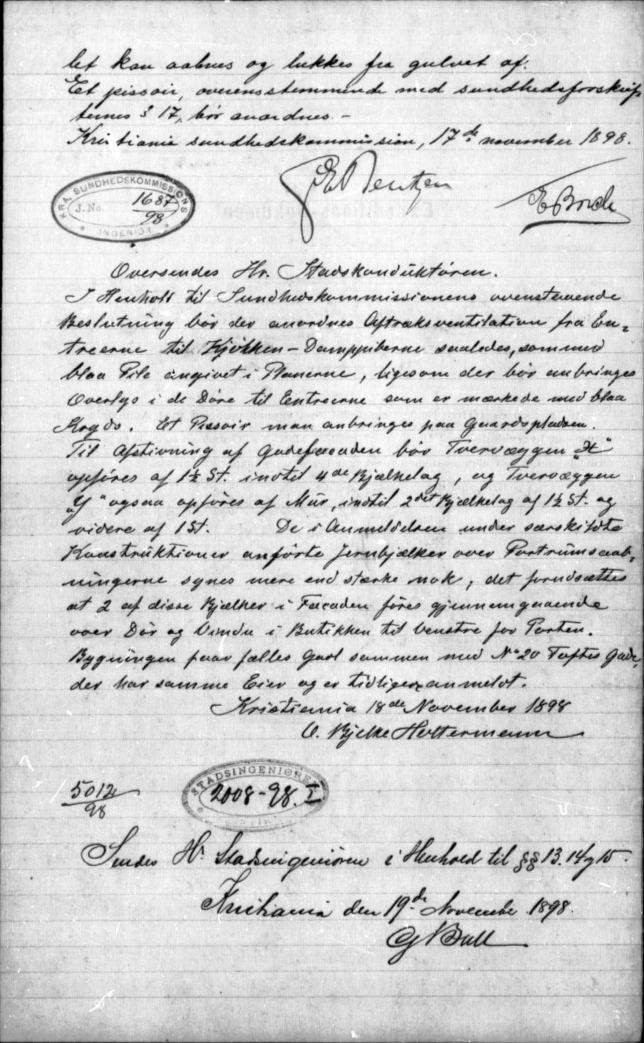 let kan aabnes og lukkes fra gulvet af.
Et pissoir, overensstemmende med sundhedsforskrif-
ternes § 17, bör anordnes. -
Kristiania sundhedskommission, 17de november 1898.
E Bentzen
E Borch
KRA. SUNDHEDSKOMMISSIONS
J. No. 1687/98
INGENIØR
Oversendes Hr. Stadskonduktøren.
I Henhold til Sundhedskommissionens ovenstaaende
Beslutning bør der anordnes Aftræksventilation fra En-
treerne til Kjökken-Damppiberne saaledes, som med
blaa Pile angivet i Planerne, ligesom der bör anbringes
Overlys i de Døre til Entreerne som er mærkede med blaa
Kryds. Et Pissoir maa anbringes paa Gaardspladsen.
Til Afstivning af Gadefacaden bør Tvervæggen "X"
opføres af 1½ St. indtil 4de Bjælkelag, og Tvervæggen
"Y" ogsaa opføres af Mur, indtil 2det Bjælkelag af 1½ St. og
videre af 1 St. De i Anmeldelsen under særskildte
Konstruktioner anførte Jernbjælker over Portrumsaab-
ningerne synes mere end stærke nok, det forudsættes
at 2 af disse Bjælker i Facaden føres gjennemgaaende
over Dør og Vindu i Butikken til venstre for Porten.
Bygningen faar fælles Gaard sammen med No 20 Toftes Gade,
der har samme Eier og er tidligere anmeldt.
Kristiania 18de November 1898
O. Bjelke Holtermann
5012/98
STADSINGENIØREN
2008-98. I
Sendes Hr. Stadsingeniøren i Henhold til §§ 13. 14 og 15.
Kristiania den 19de November 1898.
G Bull